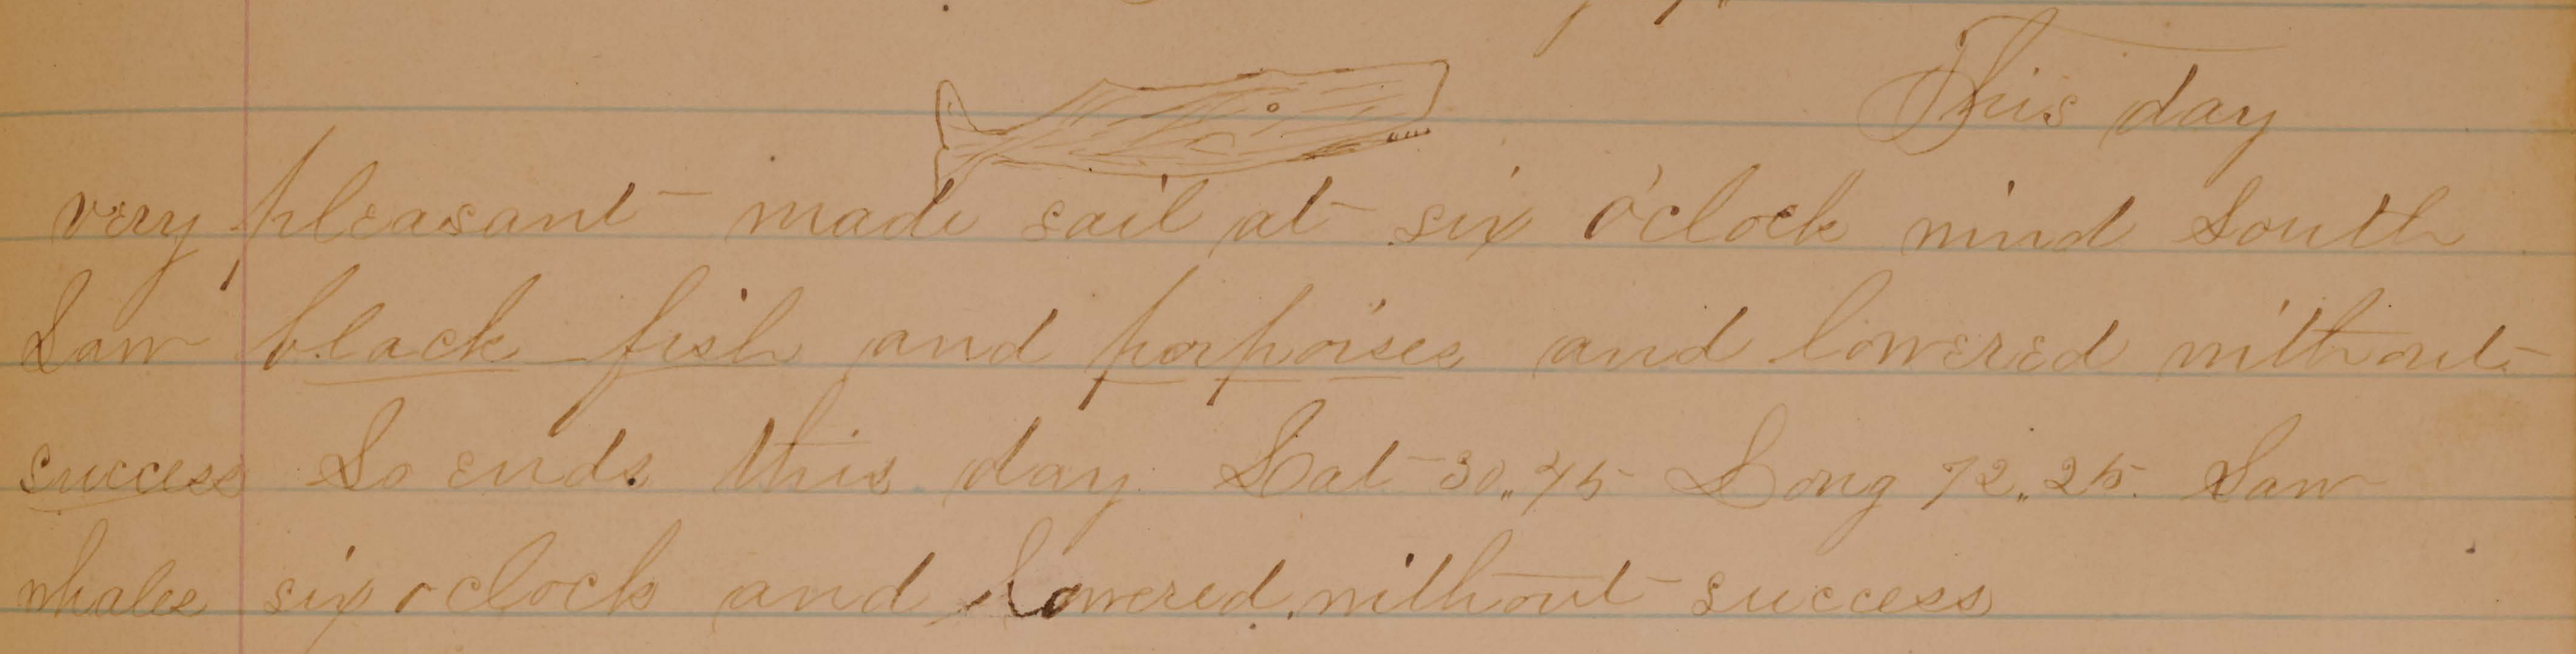 This day
very pleasant made sail at six o'clock wind South
Saw black fish and porpoises and lowered without
success So ends this day Lat 30,,45 Long 72,,25. Saw
whales six oclock and Lowered without success